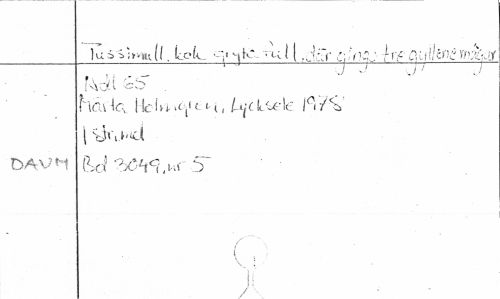 Tussimull, kok gryta full, där gingo tre gyllene mågar
Ndl 65
Märta Holmgren, Lycksele 1978
1 strimel
DAUM Bd 3049, nr 5